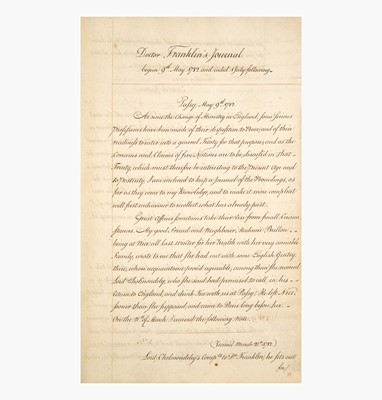 Doctor Franklin's Journal
began 9th May 1782 and ended 1 July following.
Passy, May 9th 1782.
As since the Change of Ministry in England, some serious
Professions have been made of their disposition to Peace, and of their
readiness to enter into a general Treaty for that purpose; and as the
Concerns and Claims of five Nations are to be discussed in that
Treaty, which must therefore be interesting to the Present Age and
to Posterity, I am inclined to keep a Journal of the Proceedings, as
far as they come to my Knowledge, and to make it more compleat
will first endeavour to recollect what has already past.
Great Affairs sometimes take their Rise from small Circum
stances. My good Friend and Neighbour, Madame Brillon
being at Nice all last Winter for her Health with her very amiable
Family, wrote to me that she had met with some English Gentry
there, whose acquaintance prov'd agreeable; among them she named
Lord Cholmondely, who she said had promised to call, in his
Return to England, and drink Tea with us at Passy. He left Nice
sooner than she supposed, and came to Paris long before her.
On the 21st of March I received the following Note.
(Received March 21st 1782)
Lord Cholmondely's Compts to Dr. Franklin; he sets out
for